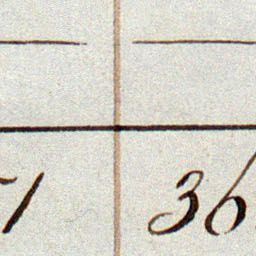 1 36